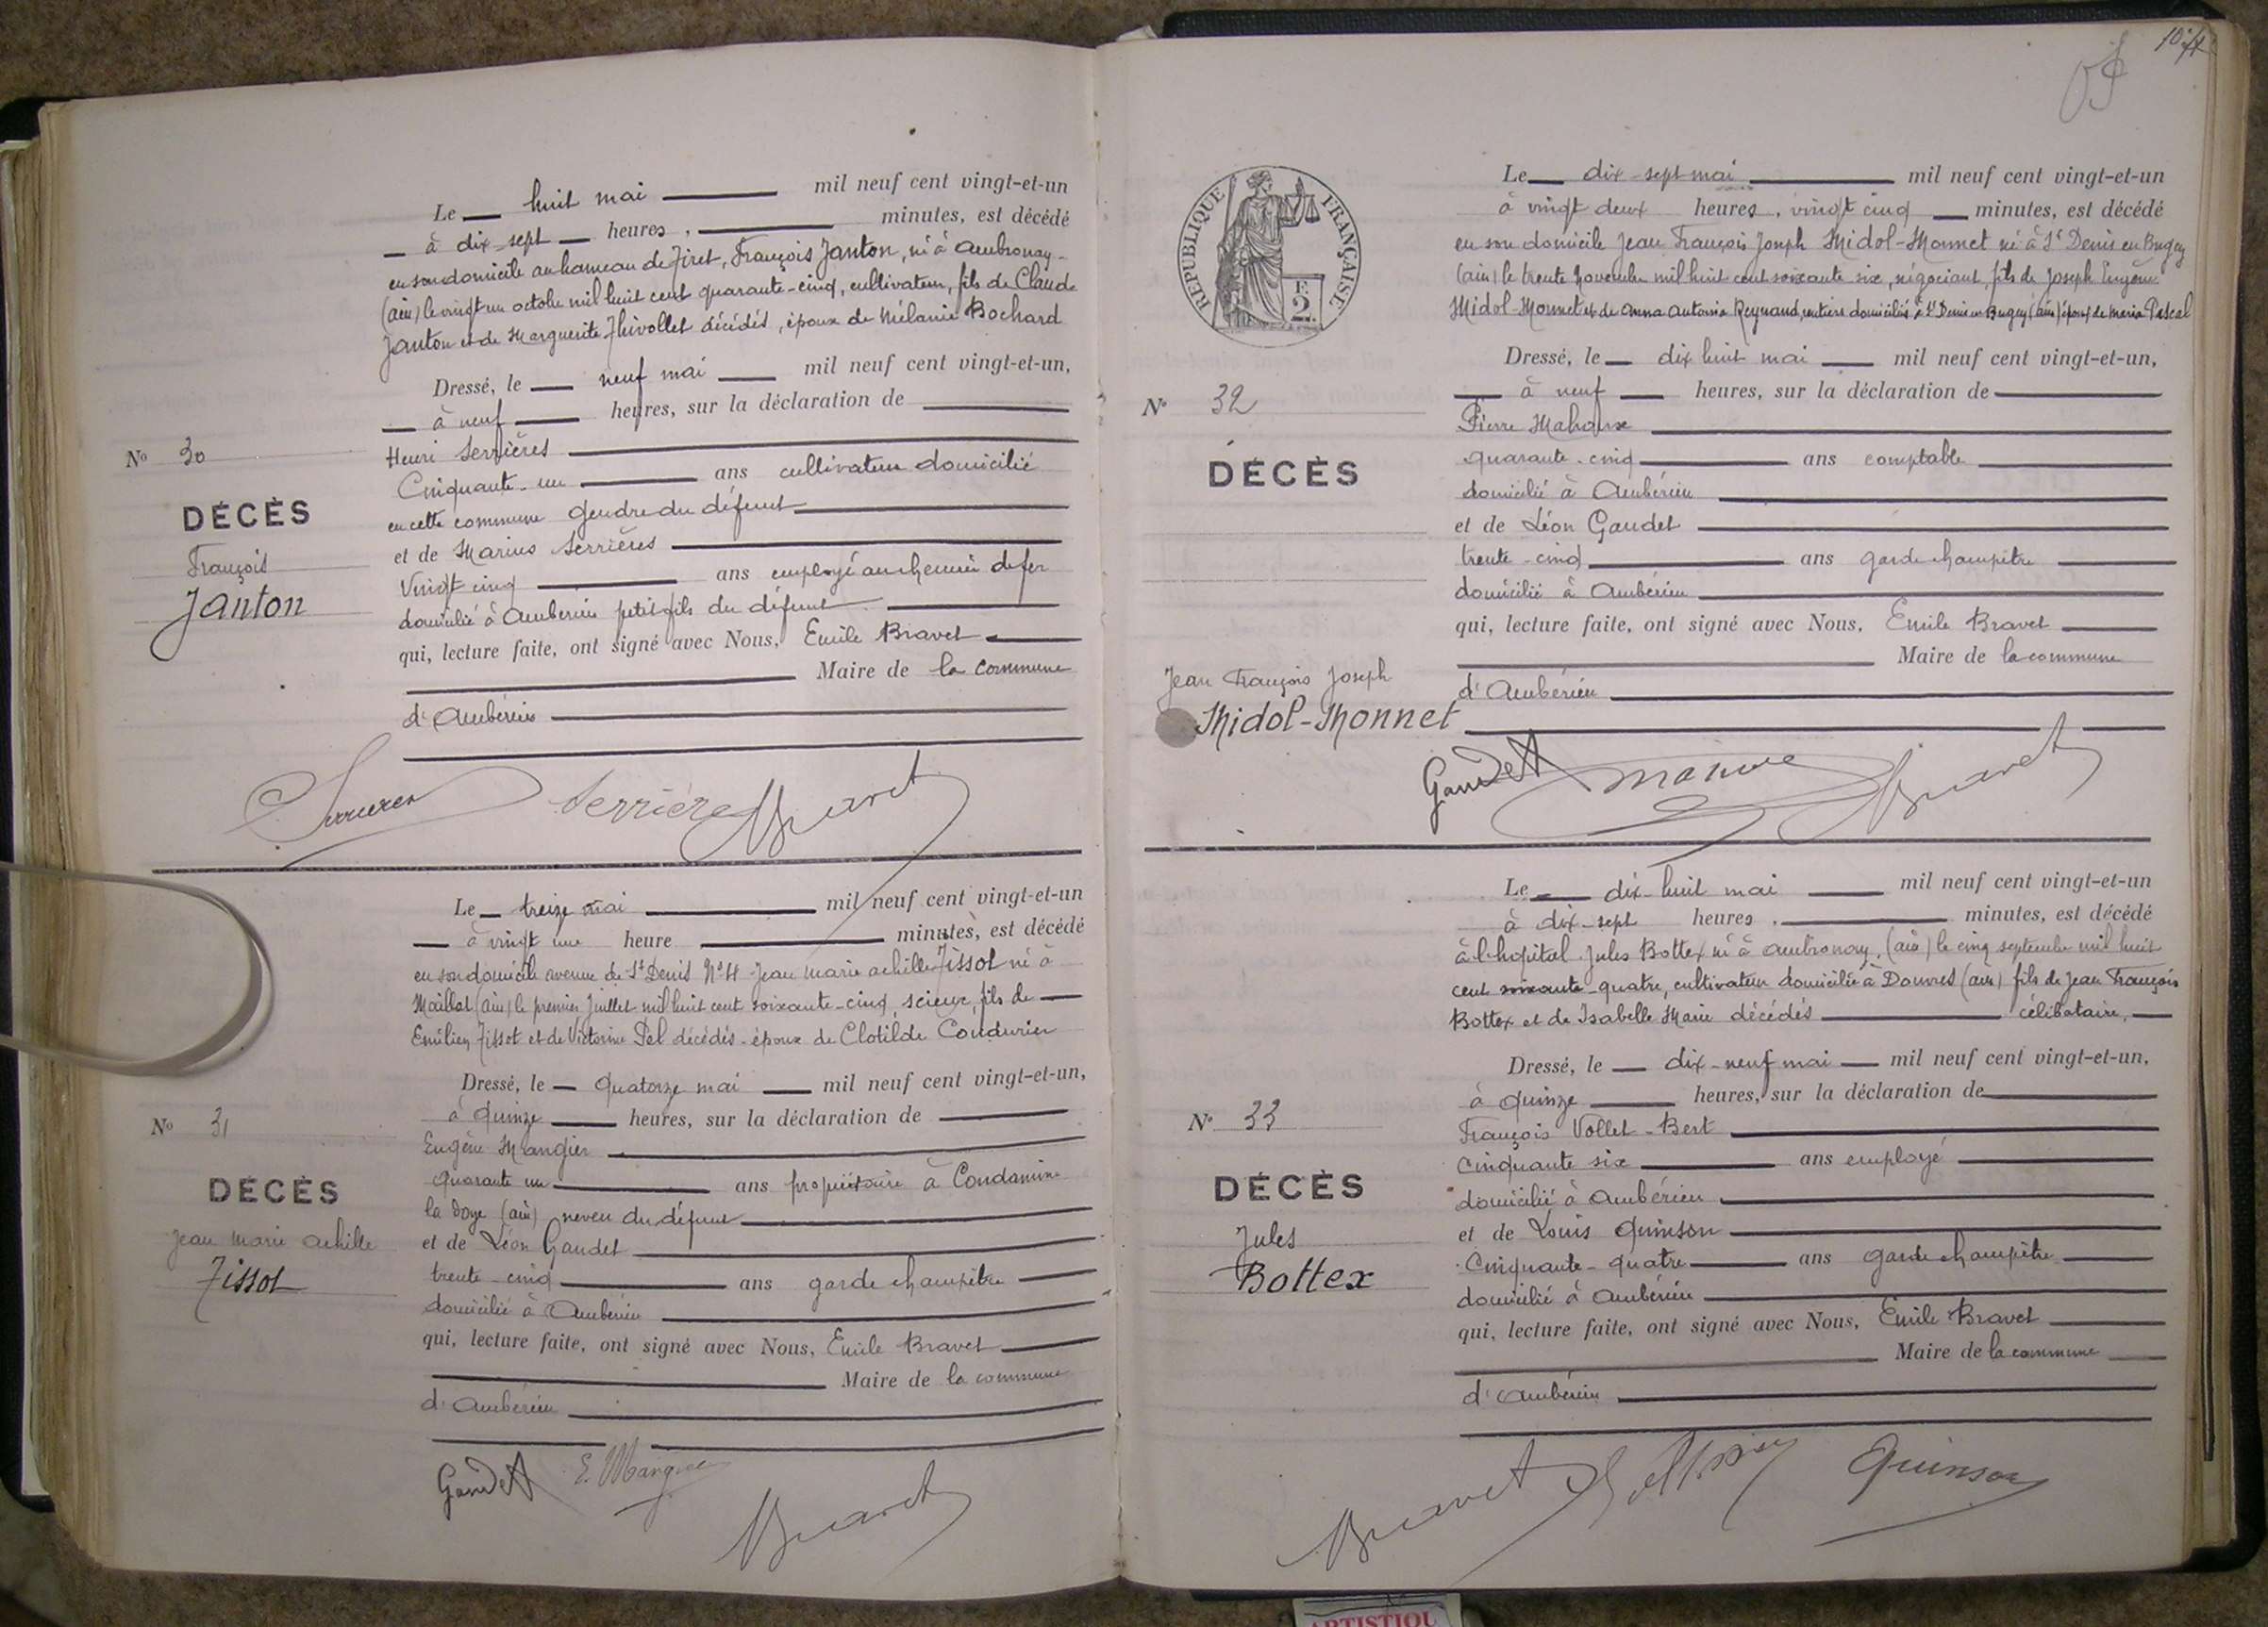 Le huit mai mil neuf cent vingt-et-un
à dix-sept heures, minutes, est décédé
en son domicile au hameau de Tiret, François Janton, né à Ambronay
(ain) le vingt un octobre mil huit cent quarante-cinq, cultivateur, fils de Claude
Janton et de Marguerite Thivollet décédés, époux de Mélanie Bochard
Dressé, le neuf mai mil neuf cent vingt-et-un,
à neuf heures, sur la déclaration de
Henri Serrières
Cinquante-un ans cultivateur domicilié
en cette commune gendre du défunt
et de Marius Serrières
Vingt cinq ans employé au chemin de fer
domicilié à Ambérieu petit fils du défunt
qui, lecture faite, ont signé avec Nous, Emile Bravet
Maire de la commune
d'Ambérieu
No 30
DÉCÈS
François
Janton
Serrière Bravet
Le treize mai mil neuf cent vingt-et-un
à vingt une heure minutes, est décédé
en son domicile avenue de St Denis No 4 Jean Marie achille Tissot né à
Maillat (ain) le premier Juillet mil huit cent soixante-cinq, scieur, fils de
Emilien Tissot et de Victorine Pel décédés. époux de Clotilde Coudurier
Dressé, le quatorze mai mil neuf cent vingt-et-un,
à quinze heures, sur la déclaration de
Eugène Mangier
quarante un ans propriétaire à Condamine
la Doye (ain) neveu du défunt
et de Léon Gaudet
trente-cinq ans garde champêtre
domicilié à Ambérieu
qui, lecture faite, ont signé avec Nous, Emile Bravet
Maire de la commune
d'Ambérieu
No 31
DÉCÈS
Jean Marie achille
Tissot
Gaudet E. Mangier
Bravet
RÉPUBLIQUE FRANÇAISE
2 F.
Le dix-sept mai mil neuf cent vingt-et-un
à vingt deux heures, vingt cinq minutes, est décédé
en son domicile Jean François Joseph Midol-Monnet né à St Denis en Bugey
(ain) le trente Novembre mil huit cent soixante six, négociant, fils de Joseph Eugène
Midol-Monnet et de Anna Antonia Reynaud, rentiers domiciliés à St Denis en Bugey (ain) époux de Maria Pascal
Dressé, le dix huit mai mil neuf cent vingt-et-un,
à neuf heures, sur la déclaration de
Pierre
quarante-cinq ans comptable
domicilié à Ambérieu
et de Léon Gaudet
trente-cinq ans garde champêtre
domicilié à Ambérieu
qui, lecture faite, ont signé avec Nous, Emile Bravet
Maire de la commune
d'Ambérieu
No 32
DÉCÈS
Jean François Joseph
Midol-Monnet
Gaudet Bravet
Le dix-huit mai mil neuf cent vingt-et-un
à dix-sept heures, minutes, est décédé
à l'hopital Jules Bottex né à Ambronay, (ain) le cinq septembre mil huit
cent soixante-quatre, cultivateur domicilié à Douvres (ain) fils de Jean François
Bottex et de Isabelle Marie décédés célibataire,
Dressé, le dix-neuf mai mil neuf cent vingt-et-un,
à quinze heures, sur la déclaration de
François Vollet-Bert
Cinquante six ans employé
domicilié à Ambérieu
et de Louis Quinson
Cinquante-quatre ans garde champêtre
domicilié à Ambérieu
qui, lecture faite, ont signé avec Nous, Emile Bravet
Maire de la commune
d'Ambérieu
No 33
DÉCÈS
Jules
Bottex
Bravet Quinson
ARTISTIQU